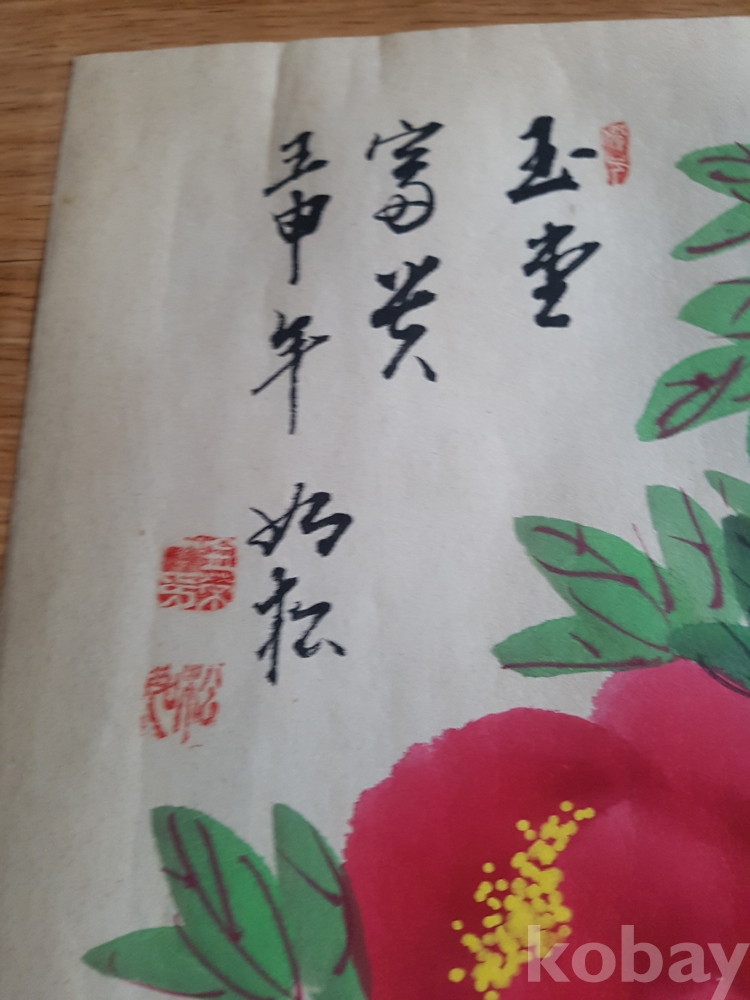 玉堂
富贵
壬申年 松
kobay